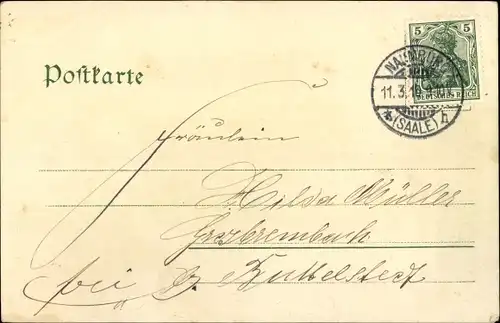 5 5
NAUMBURG
DEUTSCHES REICH
11.3.10. 9-10V.
* (SAALE) h
Postkarte
Fräulein
Hilda Müller
Großbrembach
bei Buttelstedt